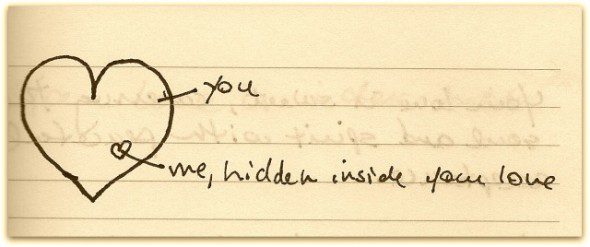 you
me, hidden inside your love